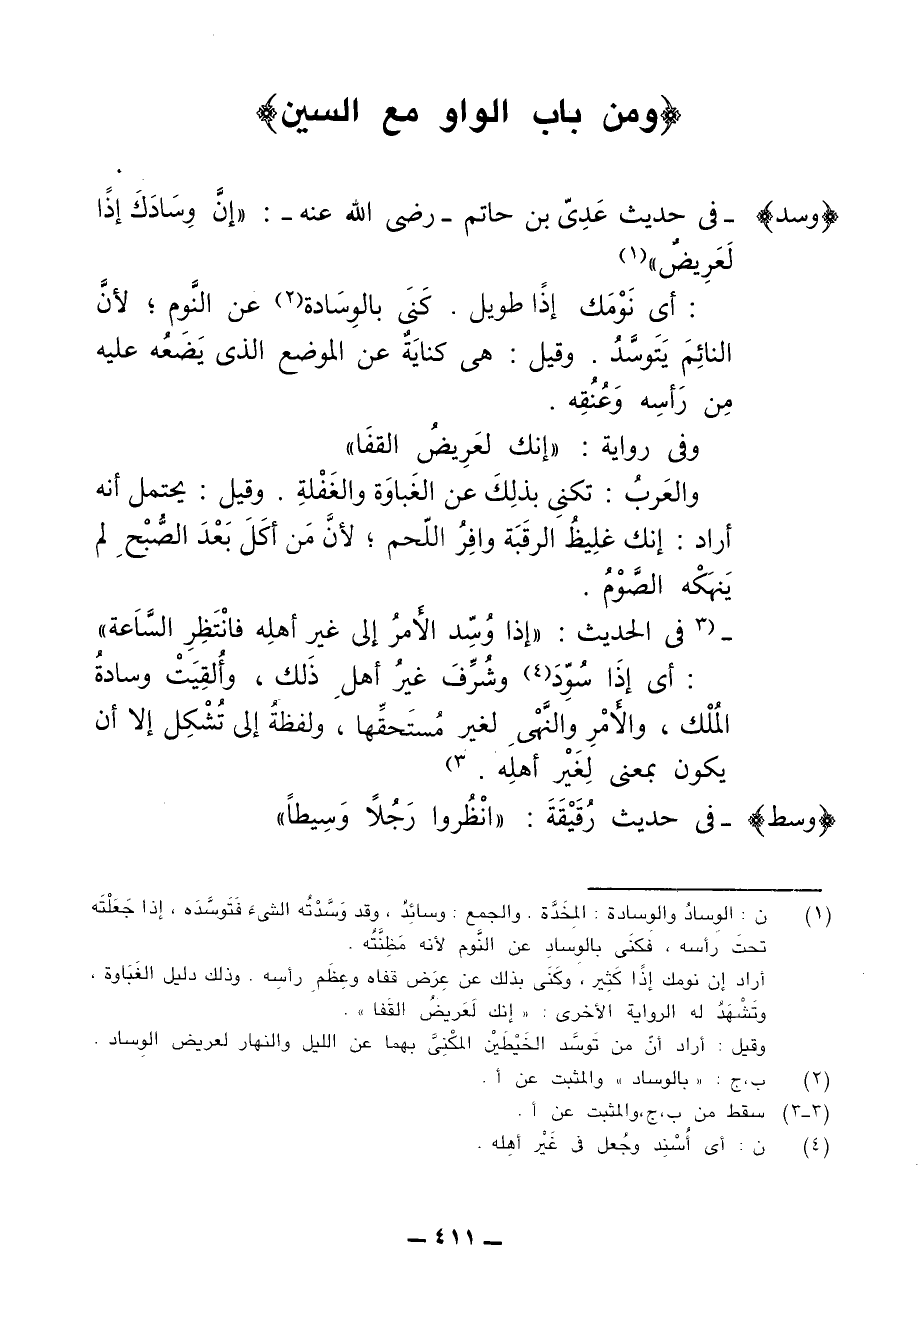 ﴿ومن باب الواو مع السين﴾
﴿وسد﴾ ـ فى حديث عَدِىّ بن حاتم ـ رضى الله عنه ـ : «إنَّ وِسَادَكَ إذًا
لَعَرِيضٌ»(١)
: أى نَوْمَك إذًا طويل . كَنَى بالوِسَادة(٢) عن النَّوم ؛ لأنَّ
النائِمَ يَتَوسَّدُ . وقيل : هى كنايَةٌ عن الموضع الذى يَضَعُه عليه
مِن رَأسِه وَعُنُقِه .
وفى رواية : «إنك لعَرِيضُ القفَا»
والعَربُ : تكنى بذلِكَ عن الغَباوَة والغَفْلةِ . وقيل : يحتمل أنه
أراد : إنك غليظُ الرقبَة وافِرُ اللّحم ؛ لأنَّ مَن أكَلَ بَعْدَ الصُّبْحِ لم
يَنهَكْه الصَّوْمُ .
ـ (٣ فى الحديث : «إذا وُسِّد الأمرُ إلى غير أهلِه فانْتَظِرِ السَّاعة»
: أى إذَا سُوِّدَ(٤) وشُرِّفَ غيرُ أهلِ ذَلك ، وأُلقِيَتْ وسادةُ
المُلْك ، والأَمْرِ والنَّهْىِ لغير مُستَحقِّها ، ولفظةُ إلى تُشْكِل إلا أن
يكون بمعنى لِغَيْر أهلِه . ٣)
﴿وسط﴾ ـ فى حديث رُقَيْقَةَ : «انْظُروا رَجُلاً وَسِيطاً»
(١) ن : الوسادُ والوسادة : المِخَدَّة . والجمع : وسائِدُ ، وقد وَسَّدْتُه الشىءَ فَتَوسَّدَه ، إذا جَعَلْتَه
تحتَ رأسه ، فكنَى بالوسادِ عن النَّوم لأنه مَظِنَّتُه .
أراد إن نومك إذًا كَثِير ، وكَنَى بذلك عن عِرَض قفاه وعِظَمِ رأسِه . وذلك دليل الغَبَاوة ،
وتَشْهَدُ له الرواية الأخرى : « إنك لَعَريضُ القَفا » .
وقيل : أراد أنّ من تَوسَّد الخَيْطَيْن المَكْنِىَّ بهما عن الليل والنهار لعَريض الوساد .
(٢) ب،ج : « بالوساد » والمثبت عن أ .
(٣ـ٣) سقط من ب،ج،والمثبت عن أ .
(٤) ن : أى أُسْنِد وجُعل فى غَيْر أهله .
ـ ٤١١ ـ